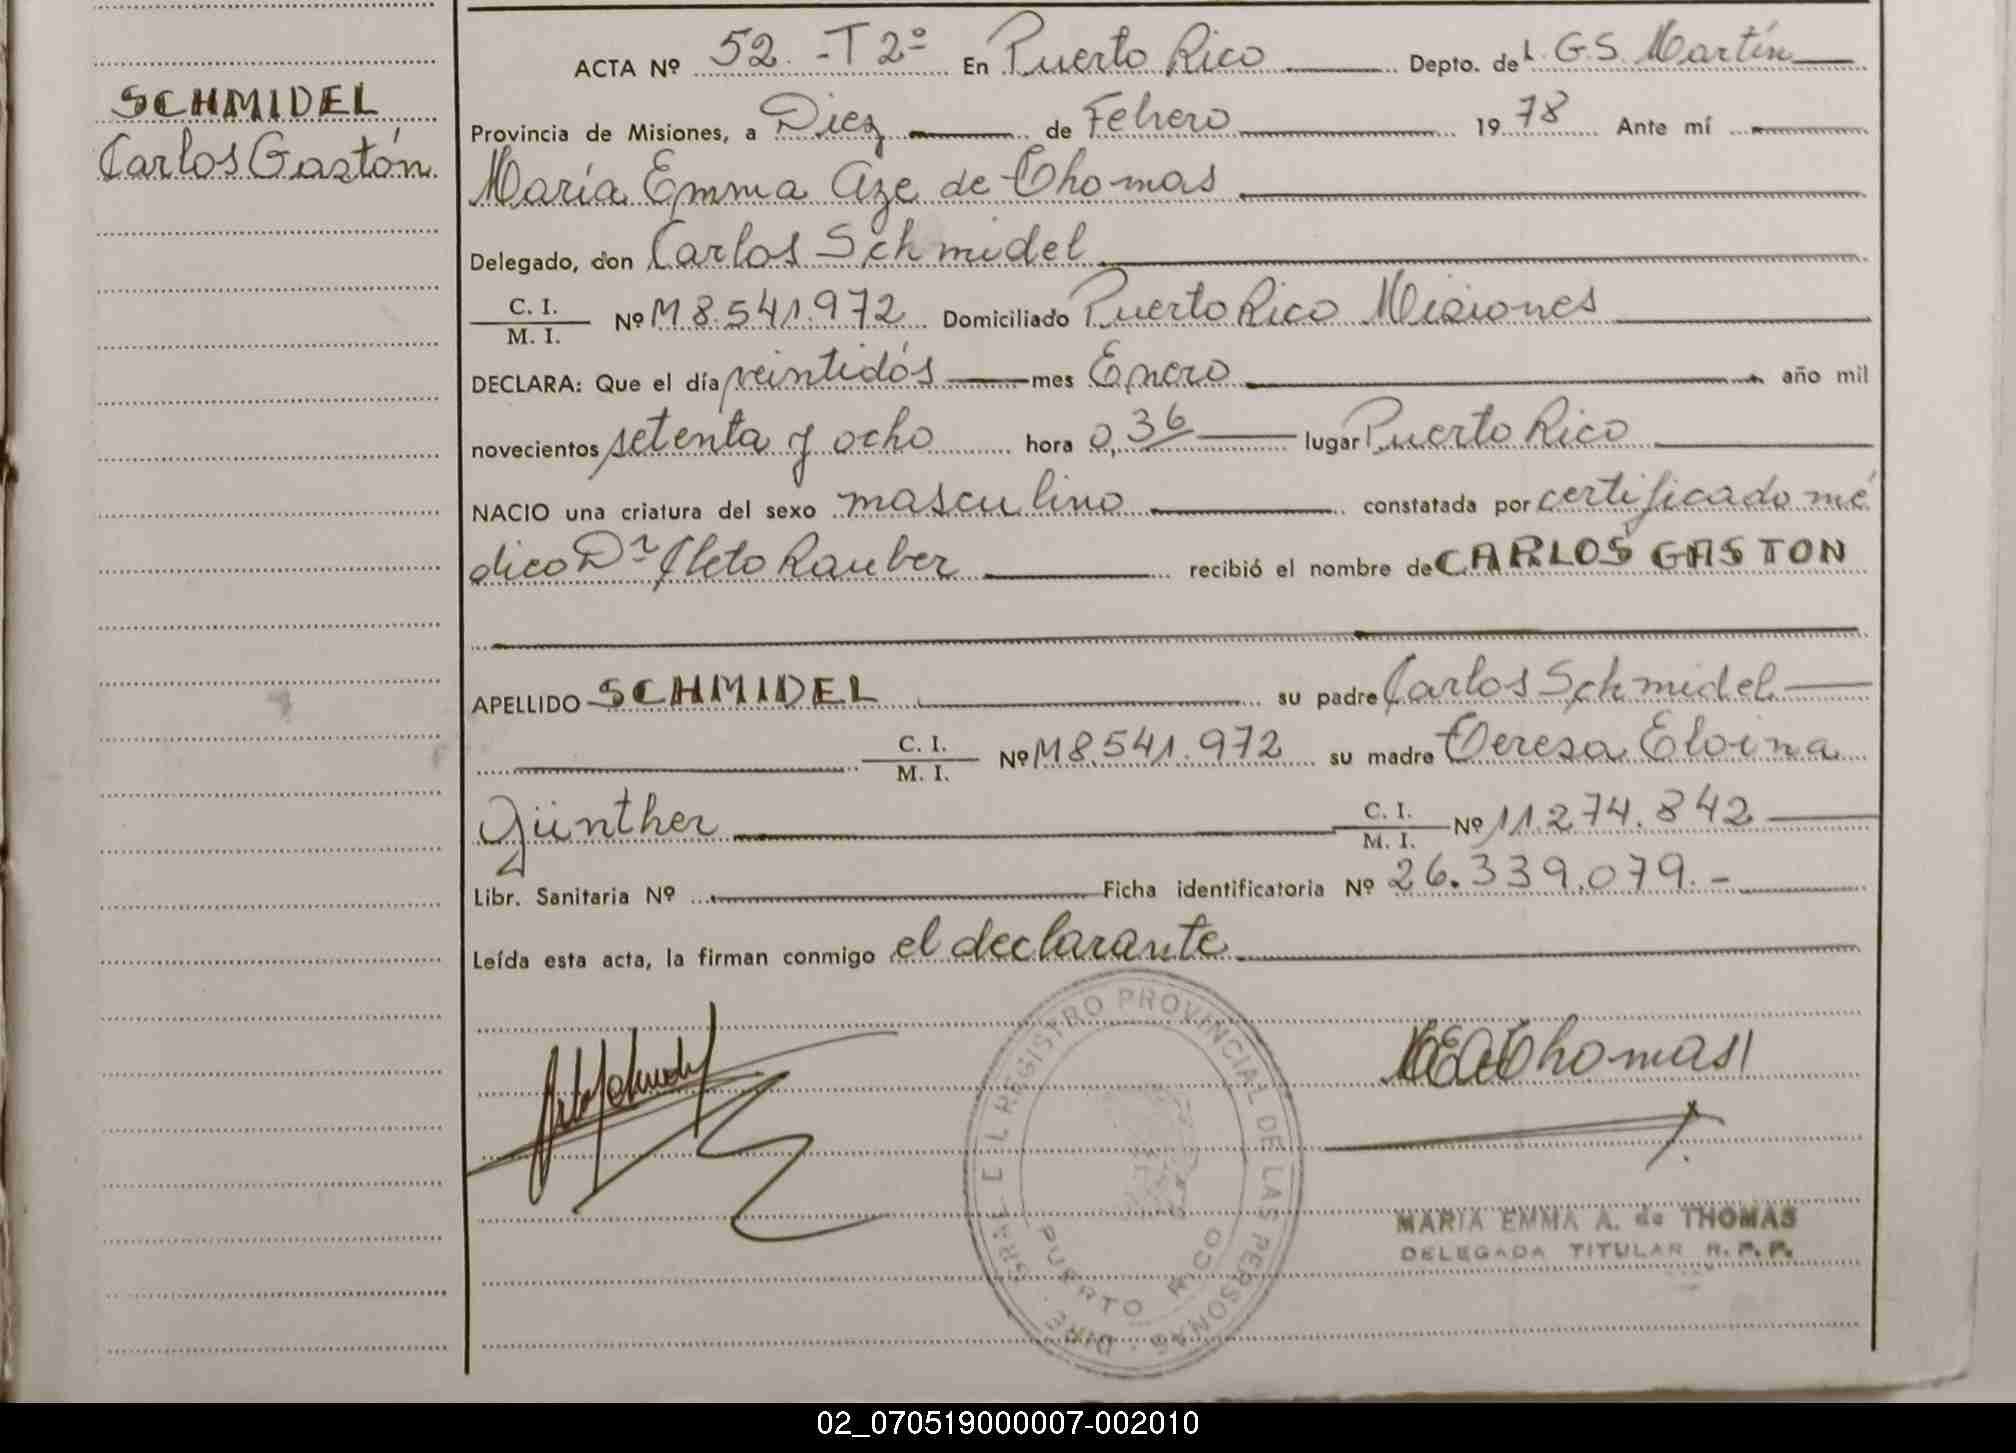 SCHMIDEL
Carlos Gastón
ACTA Nº 52.-T2º En Puerto Rico Depto. del L.G.S. Martín
Provincia de Misiones, a Diez de Febrero 1978 Ante mí
María Emma Aze de Thomas
Delegado, don Carlos Schmidel
C. I.
M. I. Nº M8.541.972 Domiciliado Puerto Rico Misiones
DECLARA: Que el día veintidós mes Enero año mil
novecientos setenta y ocho hora 0,36 lugar Puerto Rico
NACIO una criatura del sexo masculino constatada por certificado mé
dico Dr Cleto Rauber recibió el nombre de CARLOS GASTON
APELLIDO SCHMIDEL su padre Carlos Schmidel
C. I.
M. I. Nº M8.541.972 su madre Teresa Eloina
Günther C. I.
M. I. Nº 11.274.842
Libr. Sanitaria Nº Ficha identificatoria Nº 26.339.079.-
Leída esta acta, la firman conmigo el declarante
MEAThomas
REGISTRO PROVINCIAL DE LAS PERSONAS
PUERTO RICO
MARIA EMMA A. de THOMAS
DELEGADA TITULAR R. P. P.
02_070519000007-002010